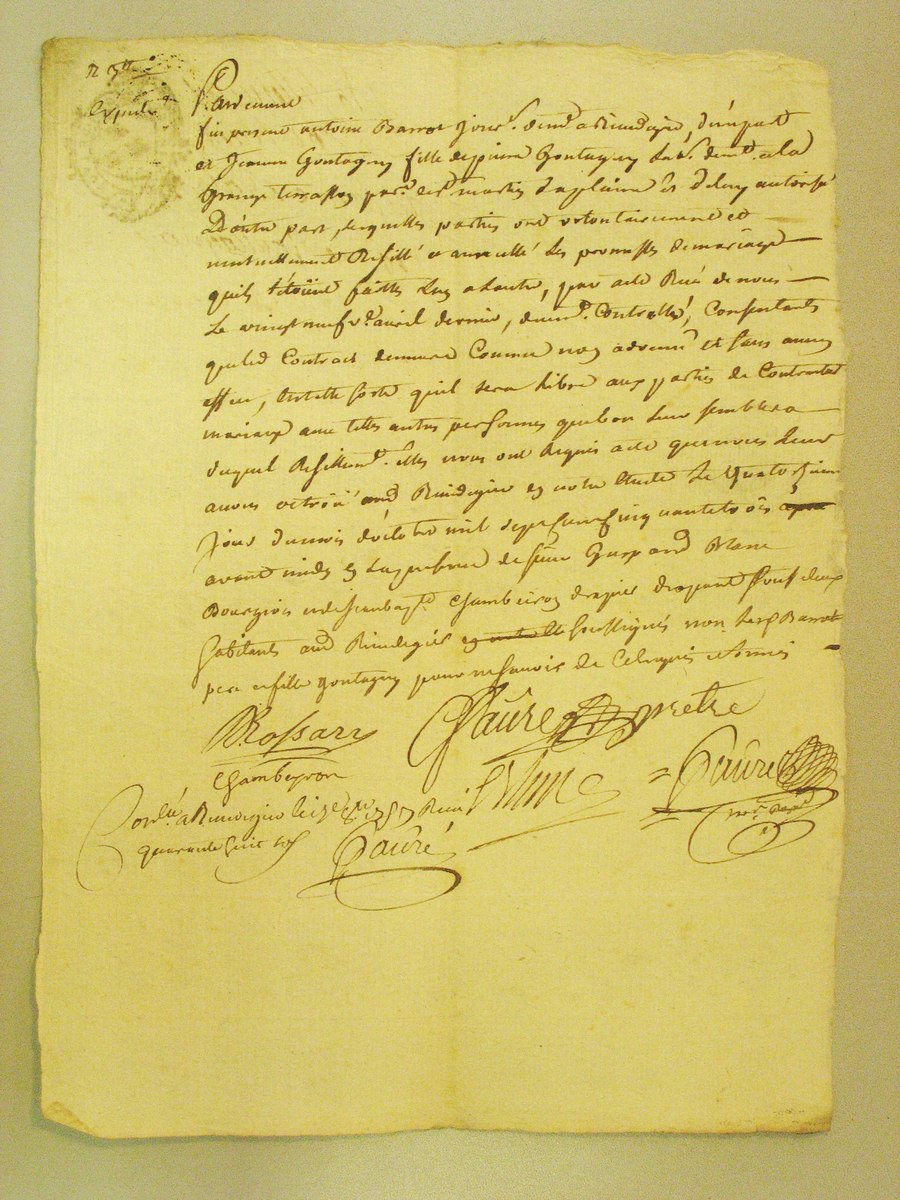 Pardevant
fut present antoine Barrot Jour.r dem.t a Rivedegier, d'une part
et Jeanne Gontagny fille de pierre Gontagny lab.r dem.t a la
Grange par.se de st. martin La plaine de deluy autorisé
D'autre part, lesquelles parties ont volontairement et
mutuellement Resillé et annullé Les promesses de mariage
quils s'étoient faittes Lun a Lautre, par acte Reçu de nous
Le vingt neuf avril dernier, duem.t Controllé, Consentants
que led Contract demeure Comme non advenu et sans aucun
effet, de telle sorte quil sera libre aux parties de Contracter
mariage avec telles autres personnes que bon leur semblera
duquel Resillem.t elles nous ont Requis acte que nous leur
avons octroié aud Rivedegier en notre Etude Le quatorzieme
Jour du mois d'octobre mil sept cent cinquante trois
avant midy En la presence de sieur Gaspard Blanc
Bourgeois et de Jean bap.te Chambeiron drapier drapant tous deux
habitants aud Rivedegier Soussignés non Led Barrot
pere et fille Gontagny pour ne savoir de Ce Enquis et sommés
Rossary Faure pretre
Chambeyron Blanc Faure
Con.lé a Rivedegier Le Reçu
quarante huit sols
Fauré